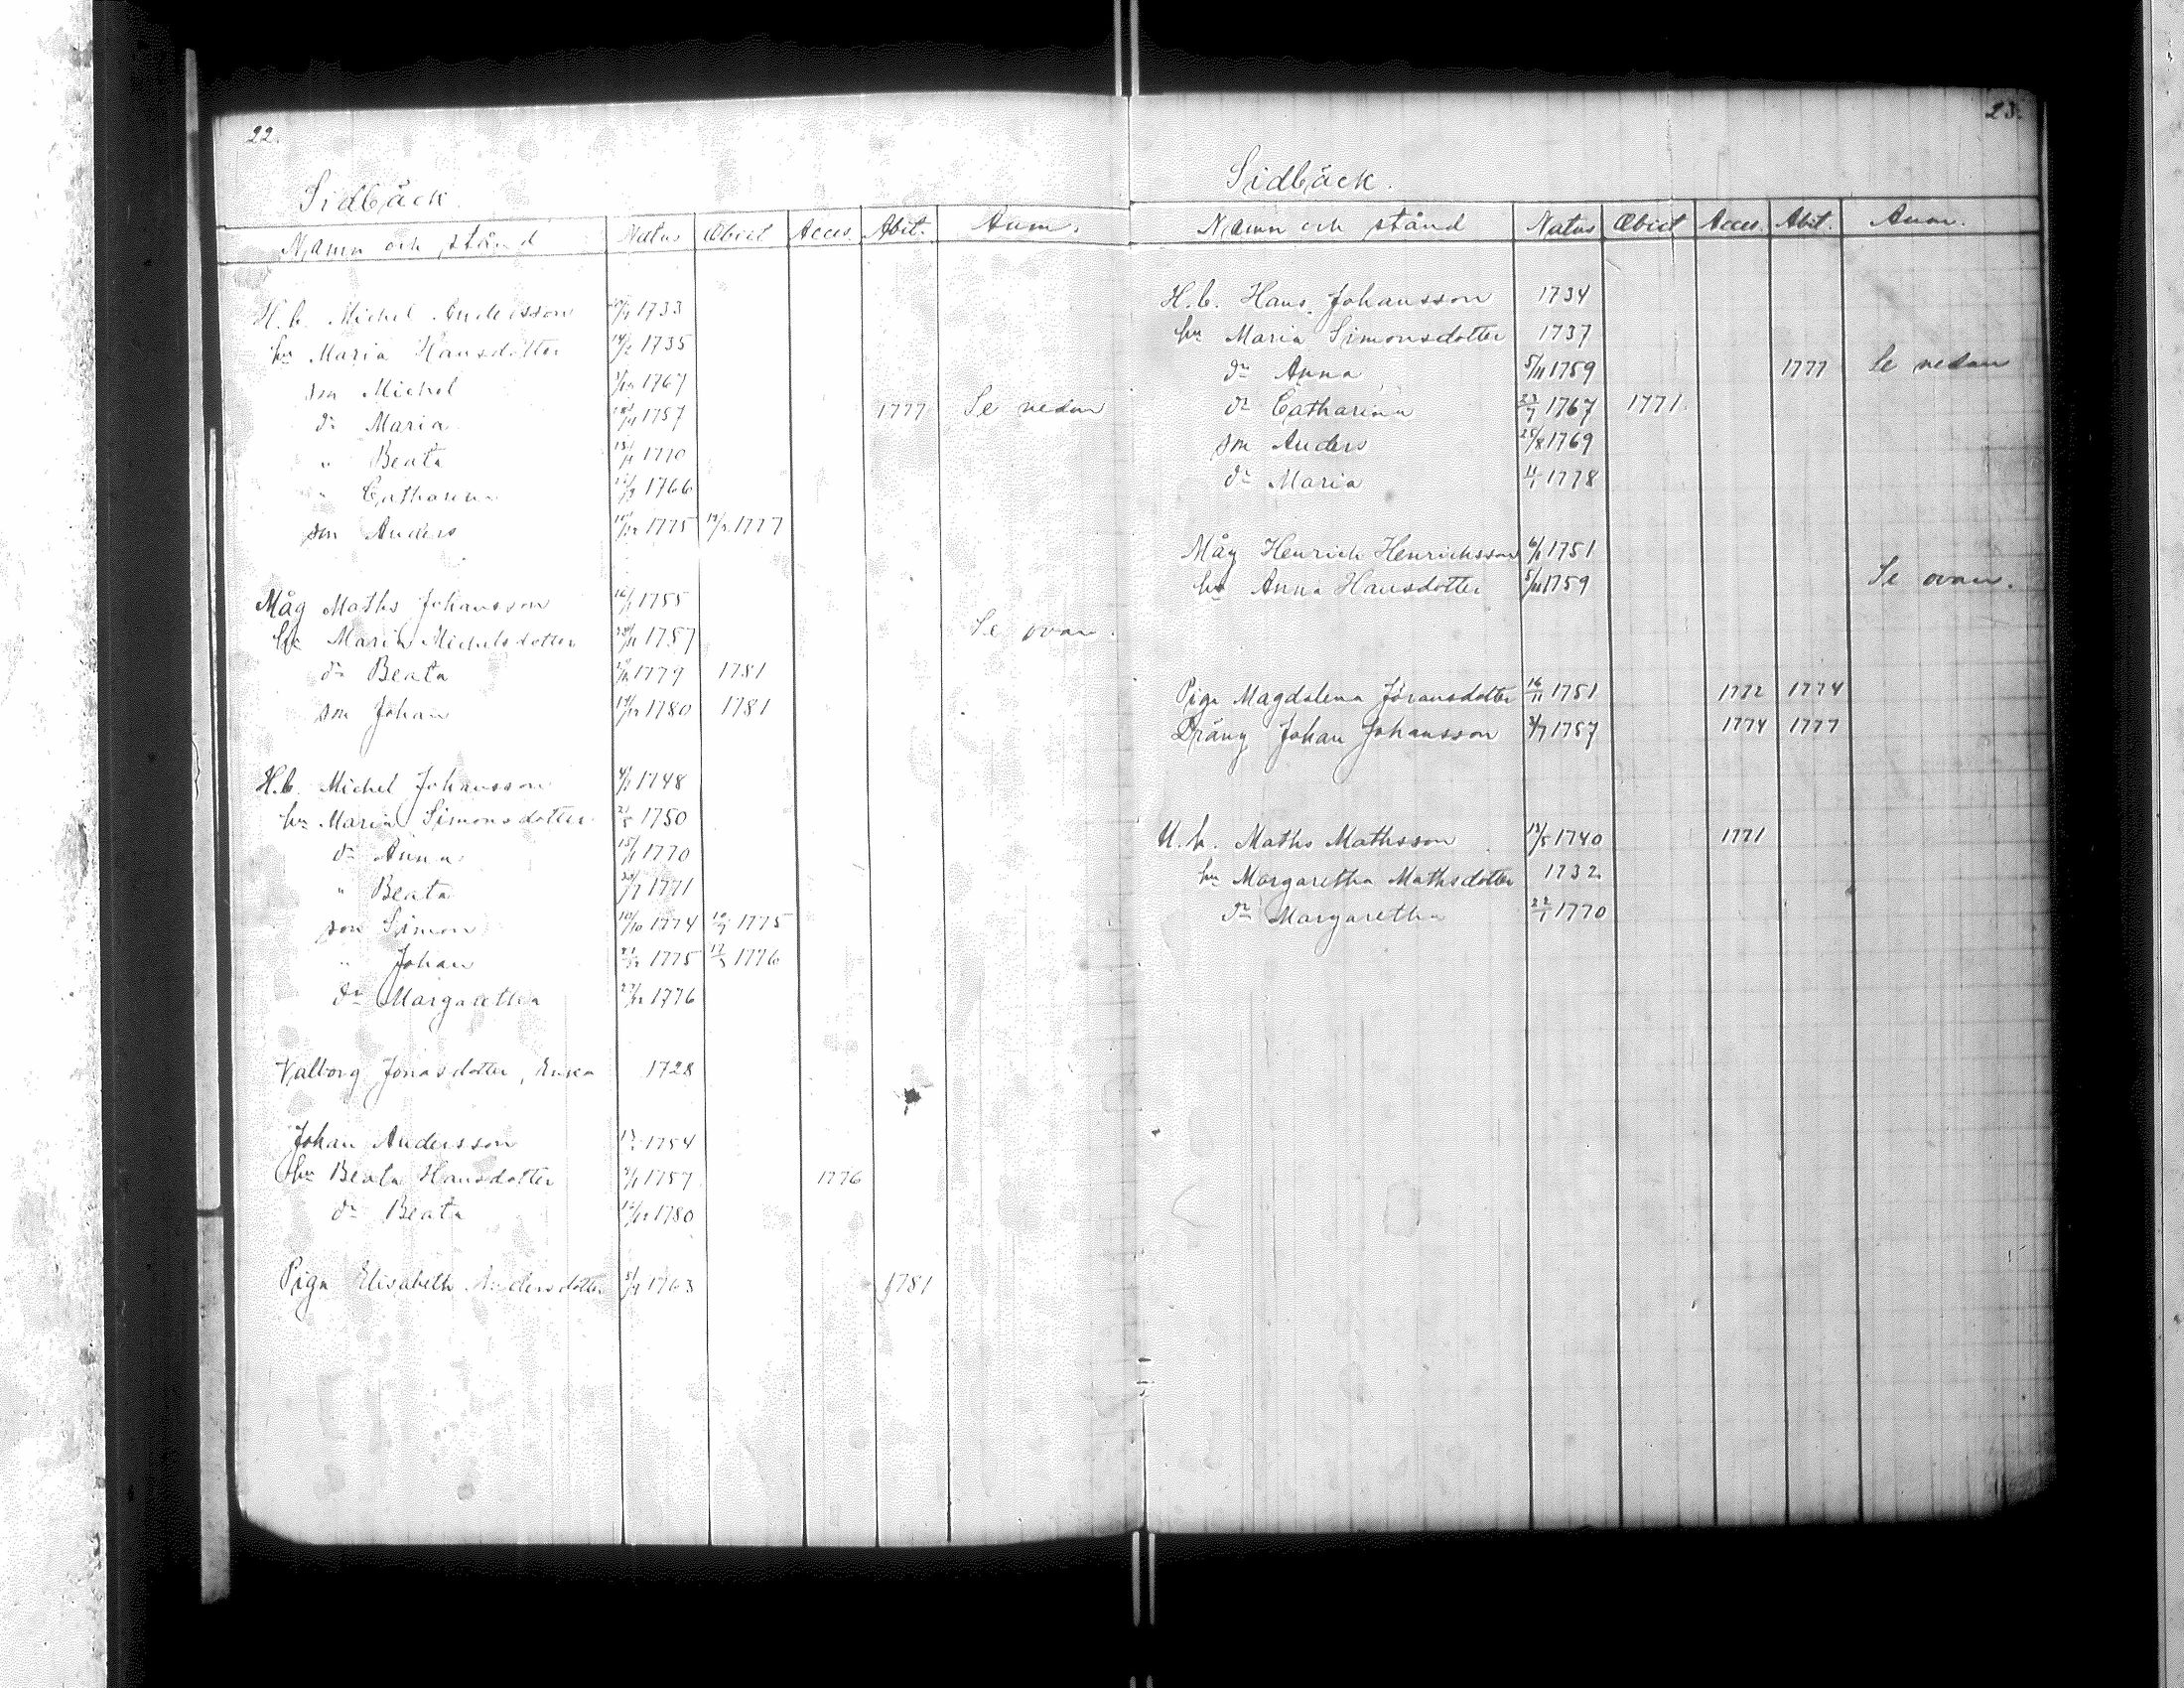 22.
Sidbäck.
Namn och stånd Natus Obiit Acces. Abit. Anm.
H.b. Michel Andersson 1733
hu Maria Hansdotter 14/2 1735
son Michel 1767
dr Maria 1757 1777 Se nedan
" Beata 1770
" Catharina 1766
son Anders 1775 1777
Måg Maths Johansson 1755
hu Maria Michelsdotter 1757 Se ovan.
dr Beata 1779 1781
son Johan 1780 1781
H.b. Michel Johansson 1748
hu Maria Simonsdotter 1750
dr Anna 1770
" Beata 1771
son Simon 10/10 1774 1775
" Johan 1775 1776
dr Margaretha 1776
Valborg Jonasdotter, Enka 1728
Johan Andersson 1754
hu Beata Hansdotter 1757 1776
dr Beata 1780
Piga Elisabeth Andersdotter 1763 1781
23.
Sidbäck.
Namn och stånd Natus Obiit Acces. Abit. Anm.
H.b. Hans Johansson 1734
hu Maria Simonsdotter 1737
dr Anna 5/11 1759 1777 Se nedan
dr Catharina 1767 1771.
son Anders 25/8 1769
dr Maria 1778
Måg Henrich Henrichsson 1751
hu Anna Hansdotter 5/11 1759 Se ovan.
Piga Magdalena Jöransdotter 16/11 1751 1772 1774
Dräng Johan Johansson 1757 1774 1777
U.b. Maths Mathsson 1740 1771
hu Margaretha Mathsdotter 1732
dr Margaretha 22/1 1770